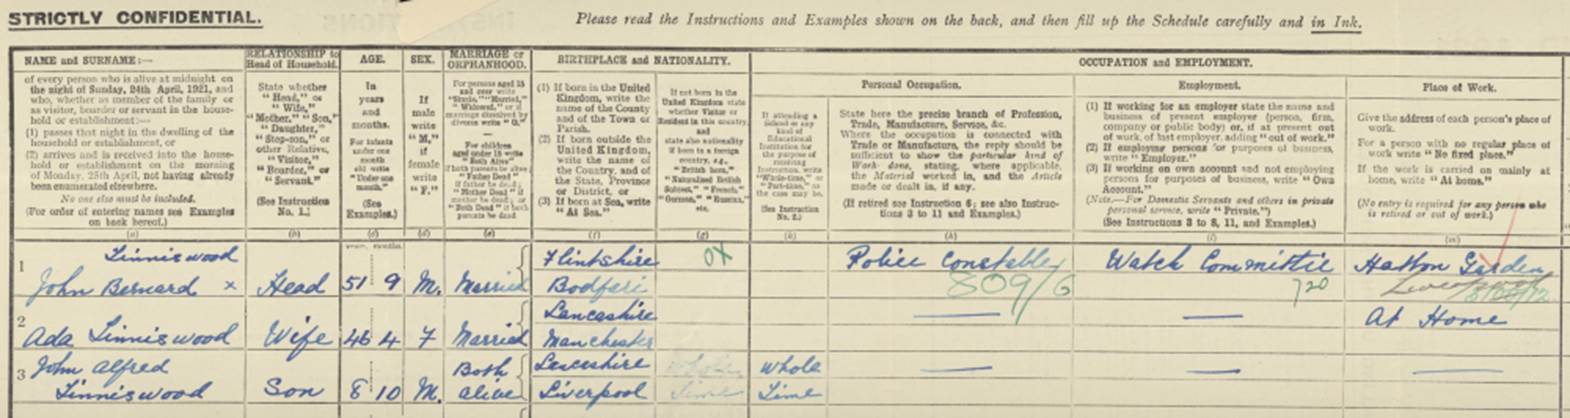 STRICTLY CONFIDENTIAL.
Please read the Instructions and Examples shown on the back, and then fill up the Schedule carefully and in Ink.
NAME and SURNAME:—
of every person who is alive at midnight on
the night of Sunday, 24th April, 1921, and
who, whether as member of the family or
as visitor, boarder or servant in the house-
hold or establishment:—
(1) passes that night in the dwelling of the
household or establishment, or
(2) arrives and is received into the house-
hold or establishment on the morning
of Monday, 25th April, not having already
been enumerated elsewhere.
No one else must be included.
(For order of entering names see Examples
on back hereof.)
(a)
RELATIONSHIP to
Head of Household.
State whether
"Head," or
"Wife,"
"Mother," "Son,"
"Daughter,"
"Step-son," or
other Relative,
"Visitor,"
"Boarder," or
"Servant."
(See Instruction
No. 1.)
(b)
AGE.
In
years
and
months.
For infants
under one
month
old write
"Under one
month."
(See
Examples.)
(c)
SEX.
If
male
write
"M,"
if
female
write
"F."
(d)
MARRIAGE or
ORPHANHOOD.
For persons aged 15
and over write
"Single," "Married,"
"Widowed," or if
marriage dissolved by
divorce write "D."
For children
aged under 15 write
"Both Alive"
if both parents be alive;
"Father Dead"
if father be dead;
"Mother Dead" if
mother be dead; or
"Both Dead" if both
parents be dead
(e)
BIRTHPLACE and NATIONALITY.
(1) If born in the United
Kingdom, write the
name of the County
and of the Town or
Parish.
(2) If born outside the
United Kingdom,
write the name of
the Country, and of
the State, Province
or District, or
(3) If born at Sea, write
"At Sea."
(f)
If not born in the
United Kingdom state
whether Visitor or
Resident in this country,
and
state also nationality
if born in a foreign
country, e.g.,
"British born,"
"Naturalised British
Subject," "French,"
"German," "Russian,"
etc.
(g)
OCCUPATION and EMPLOYMENT.
If attending a
School or any
kind of
Educational
Institution for
the purpose of
receiving
Instruction, write
"Whole-time," or
"Part-time," as
the case may be.
(See Instruction
No. 2.)
(h)
Personal Occupation.
State here the precise branch of Profession,
Trade, Manufacture, Service, &c.
Where the occupation is connected with
Trade or Manufacture, the reply should be
sufficient to show the particular kind of
Work done, stating, where applicable,
the Material worked in, and the Article
made or dealt in, if any.
(If retired see Instruction 6; see also Instruc-
tions 3 to 11 and Examples.)
(k)
Employment.
(1) If working for an employer state the name and
business of present employer (person, firm,
company or public body) or, if at present out
of work, of last employer, adding "out of work."
(2) If employing persons for purposes of business,
write "Employer."
(3) If working on own account and not employing
persons for purposes of business, write "Own
Account."
(Note.—For Domestic Servants and others in private
personal service, write "Private.")
(See Instructions 3 to 8, 11, and Examples.)
(l)
Place of Work.
Give the address of each person's place of
work.
For a person with no regular place of
work write "No fixed place."
If the work is carried on mainly at
home, write "At home."
(No entry is required for any person who
is retired or out of work.)
(m)
years. months.
1 Linniswood Flintshire OX Police Constable Watch Committie Hatton Garden
John Bernard × Head 51 9 M. Married Bodfari 809/6 720 Liverpool
2 Lancashire — — At Home
Ada Linniswood Wife 46 4 F Married Manchester
3 John Alfred Both Lancashire Whole — — —
Linniswood Son 8 10 M. alive Liverpool Time Time